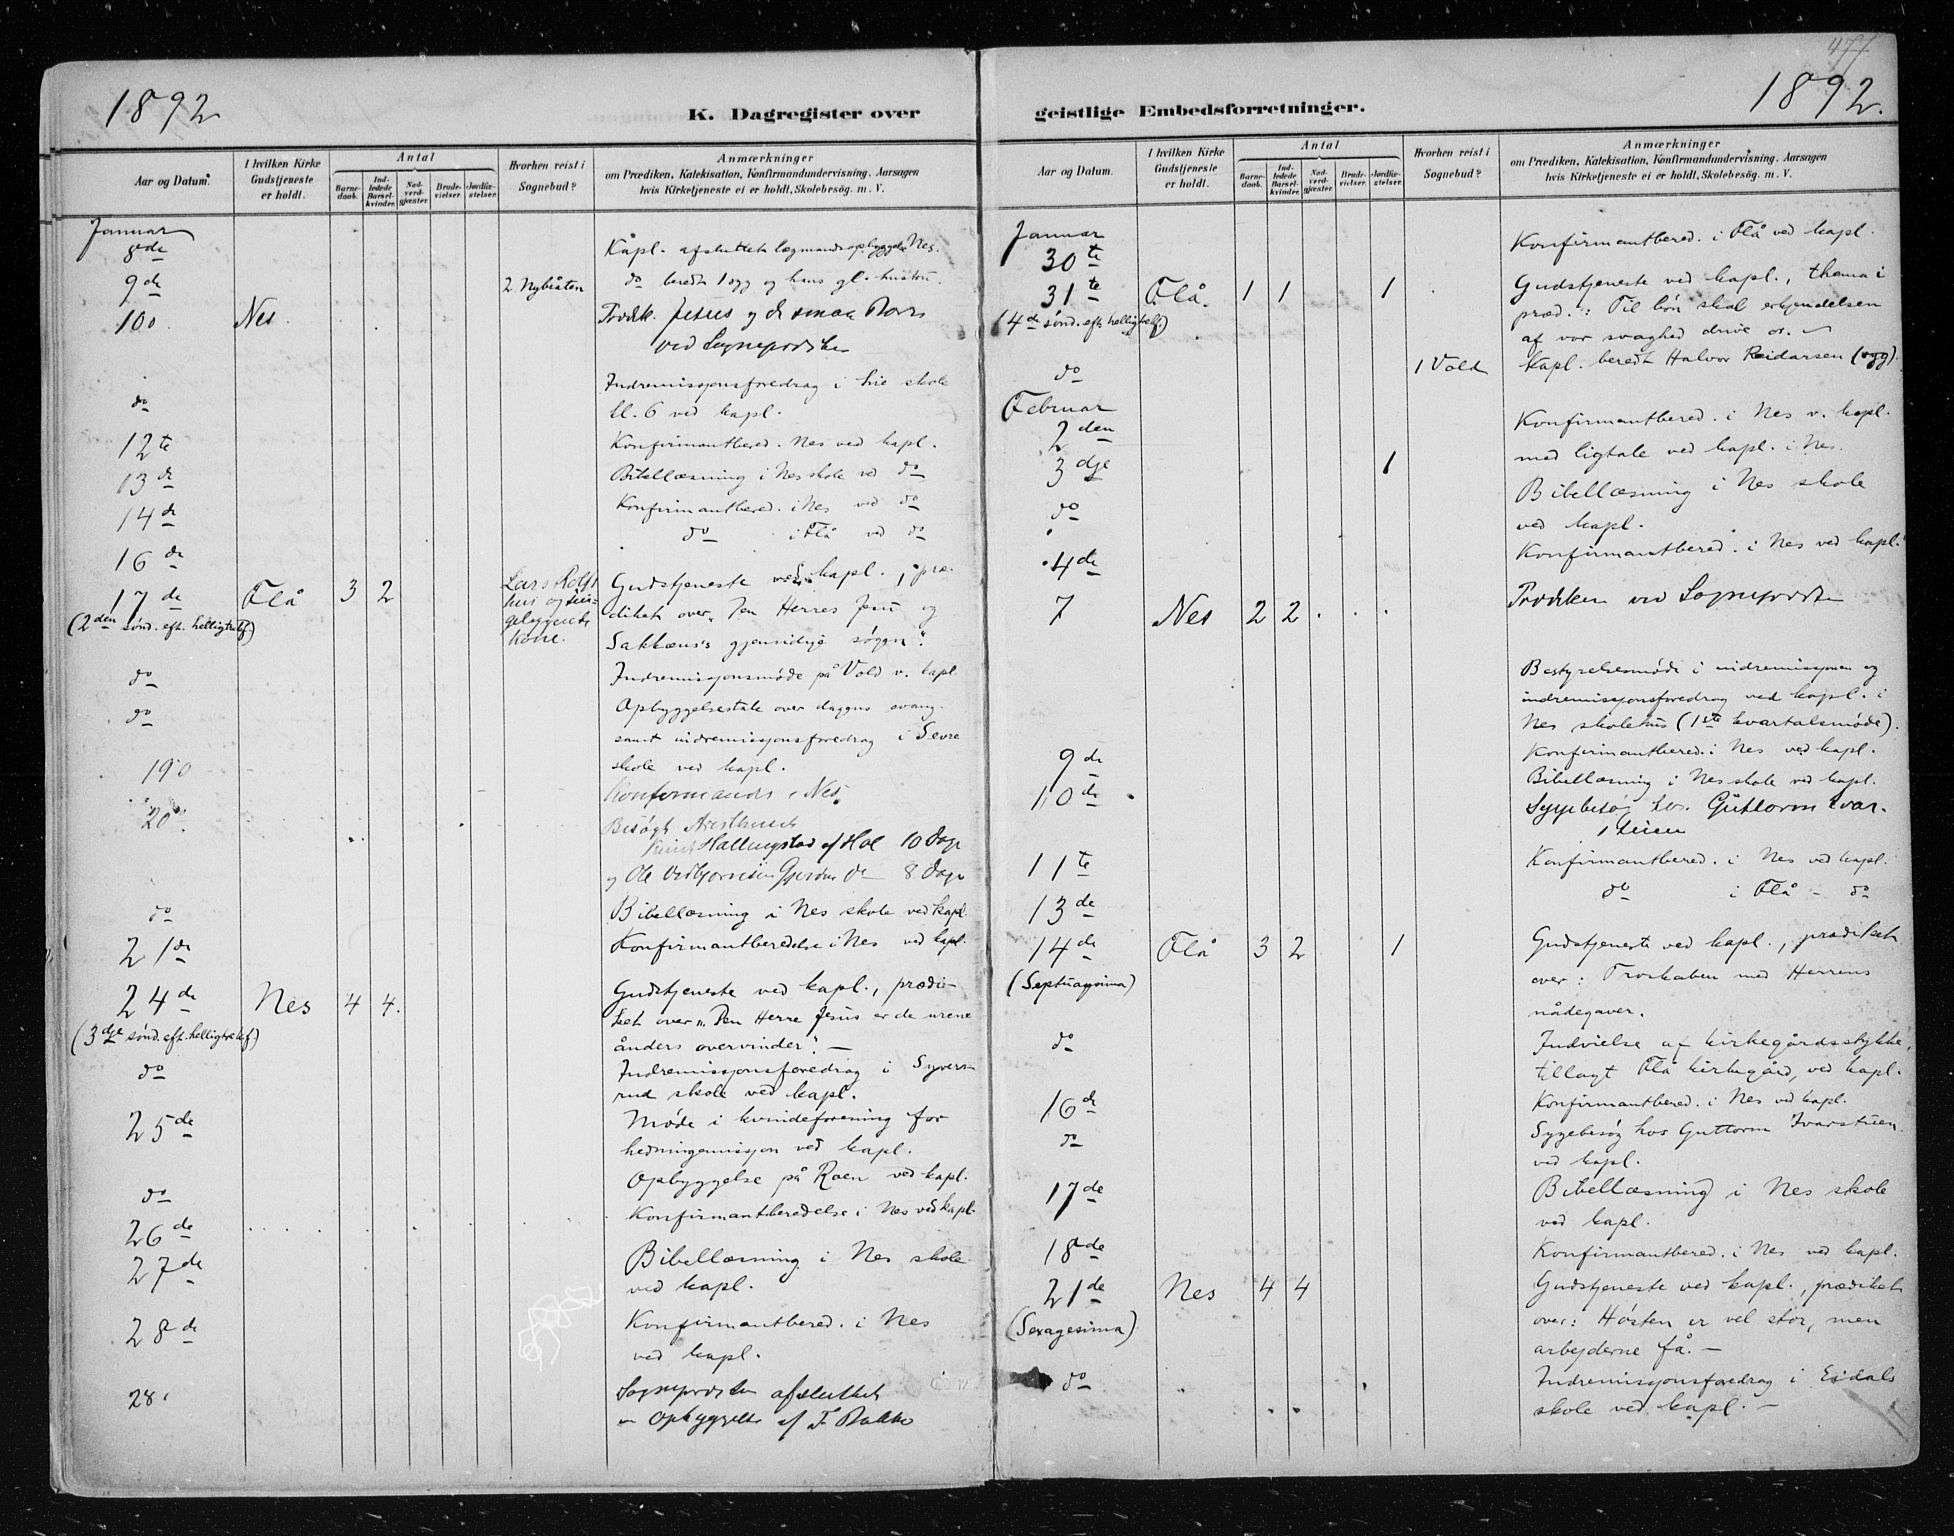 1892
K. Dagregister over
Aar og Datum.
I hvilken Kirke Gudstjeneste er holdt.
Antal
Barnedaab.
Indledede Barselkvinder.
Nadverdgjæster.
Brudevielser.
Jordfæstelser.
Hvorhen reist i Sognebud?
Anmærkninger
om Prædiken, Katekisation, Konfirmandundervisning. Aarsagen
hvis Kirketjeneste ei er holdt, Skolebesøg. m. V.
Januar
8de Kapl. afsluttet lægmandsopbyggelse Nes.
9de 2 Nybråten do beredt 1 syg og hans gl. hustru.
10 Nes Prædk. Jesus og de smaa Børn
ved Sognepræsten
do Indremissjonsforedrag i skole
kl. 6 ved kapl.
12te Konfirmantbered. Nes ved kapl.
13de Bibellæsning i Nes skole ved do
14de Konfirmantbered. i Nes ved do
16de do i Flå ved do
17de Flå 3 2 Lars Gudstjeneste ved kapl., præ-
(2den sønd. eft. helligtrekf.) hus og dikat over "Den Herres Jesu og
kone. Sakkæus's gjensidige søgen".
do Indremissjonsmøde på Vold v. kapl
do Opbyggelsestale over dagens evang.
samt indremissjonsforedrag i Sevre
skole ved kapl.
19 Konfirmander i Nes.
20 Besøgt Arresthuset
Hallingstad af Hol 10 Dage
og Ole 8 Dage
do Bibellæsning i Nes skole ved kapl.
21de Konfirmantberedelse i Nes ved kapl.
24de Nes 4 4. Gudstjeneste ved kapl., prædi-
(3dje sønd. eft. helligtrekf.) ket over "Den Herre Jesus er de urene
ånders overvinder". —
do Indremissjonsforedrag i Syvers-
rud skole ved kapl.
25de Møde i kvindeforening for
hedningemissjon ved kapl.
do Opbyggelse på Roen ved kapl.
26de Konfirmantberedelse i Nes ved kapl.
27de Bibellæsning i Nes skole
ved kapl.
28de Konfirmantbered. i Nes
ved kapl.
28 Sognepræsten afsluttet
en Opbyggelse af F. Bakke
477
1892.
geistlige Embedsforretninger.
Aar og Datum.
I hvilken Kirke Gudstjeneste er holdt.
Antal
Barnedaab.
Indledede Barselkvinder.
Nadverdgjæster.
Brudevielser.
Jordfæstelser.
Hvorhen reist i Sognebud?
Anmærkninger
om Prædiken, Katekisation, Konfirmandundervisning. Aarsagen
hvis Kirketjeneste ei er holdt, Skolebesøg. m. V.
Januar
30te Konfirmantbered. i Flå ved kapl.
31te Flå. 1 1 1 Gudstjeneste ved kapl., thema i
(4de sønd. eft. helligtrekf.) præd.: Til bøn skal erkjendelsen
af vor svaghed drive os. —
do 1 Vold Kapl. beredt Halvor Reidarsen (syg).
Februar
2den Konfirmantbered. i Nes v. kapl.
3dje 1 med ligtale ved kapl. i Nes.
do Bibellæsning i Nes skole
ved kapl.
4de Konfirmantbered. i Nes ved kapl.
7 Nes 2 2 Prædiken ved Sognepræsten
Bestyrelsesmøde i indremissjonen og
indremissjonsforedrag ved kapl. i
Nes skolehus (1ste kvartalsmøde).
9de Konfirmantbered. i Nes ved kapl.
10de Bibellæsning i Nes skole ved kapl.
Sygebesøg hos Guttorm Ivar-
stuen
11te Konfirmantbered. i Nes ved kapl.
13de do i Flå - do
14de Flå 3 2 1 Gudstjeneste ved kapl., prædiket
(Septuagesima) over: Troskaben med Herrens
nådegaver.
do Indvielse af kirkegårdsstykke,
tillagt Flå kirkegård, ved kapl.
16de Konfirmantbered. i Nes ved kapl.
do Sygebesøg hos Guttorm Ivarstuen
ved kapl.
17de Bibellæsning i Nes skole
ved kapl.
18de Konfirmantbered. i Nes ved kapl.
21de Nes 4 4 Gudstjeneste ved kapl., prædiket
(Sexagesima) over: Høsten er vel stor, men
arbejderne få. —
do Indremissjonsforedrag i Eidals
skole ved kapl. —